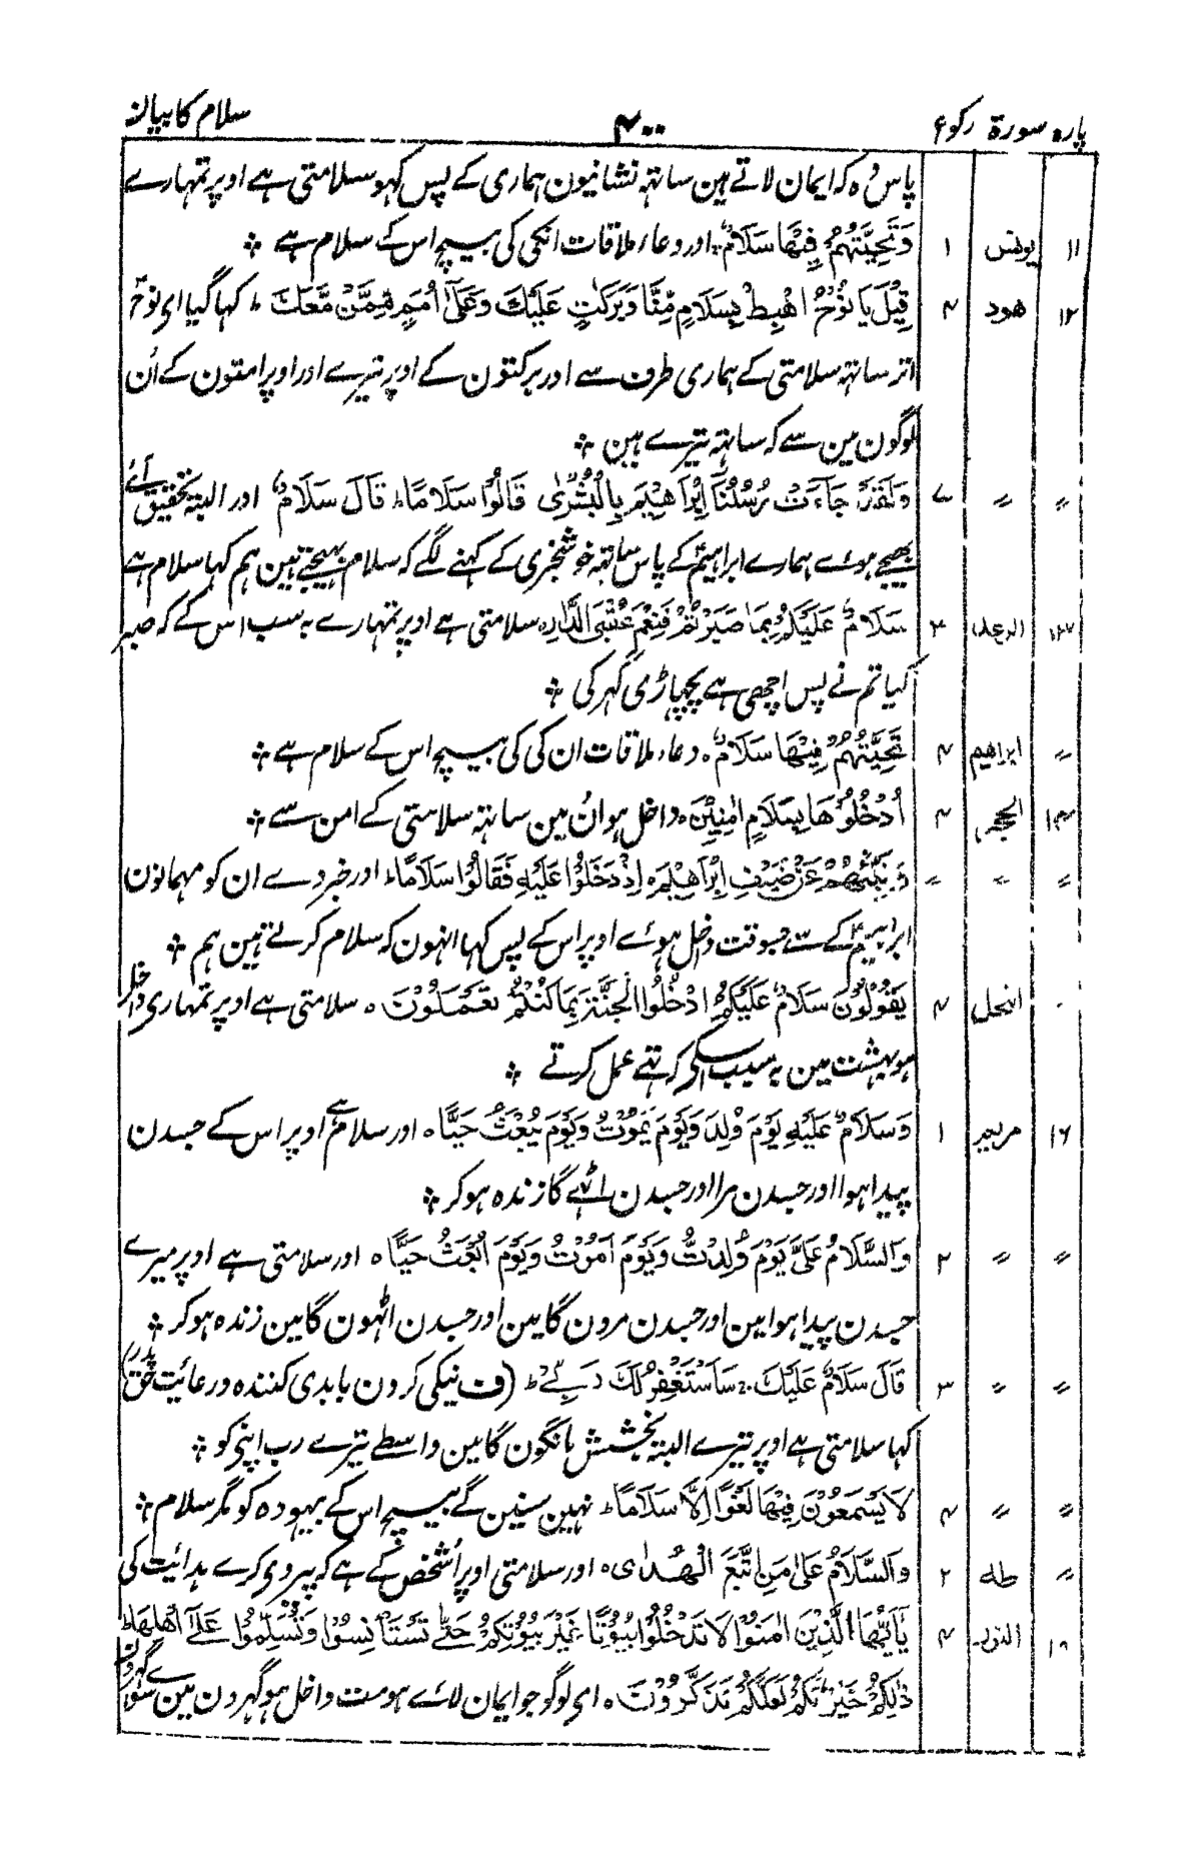 پارہ سورۃ رکوع ۴۰۰ سلام کا بیان
پاس وہ کہ ایمان لاتے ہین ساتہہ نشانیون ہماری کے پس کہو سلامتی ہے اوپر تمہارے
۱۱ یونس ۱ وَتَحِيَّتُهُمْ فِيْهَا سَلَامٌ اور دعاء ملاقات انکی کی بیچ اس کے سلام ہے ÷
۱۲ هود ۴ قِيْلَ يَا نُوْحُ اهْبِطْ بِسَلَامٍ مِّنَّا وَبَرَكٰتٍ عَلَيْكَ وَعَلٰٓى اُمَمٍ مِّمَّنْ مَّعَكَ ط کہا گیا ای نوحؑ
اتر ساتہہ سلامتی کے ہماری طرف سے اور برکتون کے اوپر تیرے اور اوپر امتون کے اُن
لوگون مین سے کہ ساتہہ تیرے ہین ÷
〃 〃 ۷ وَلَقَدْ جَآءَتْ رُسُلُنَآ اِبْرَاهِيْمَ بِالْبُشْرٰى قَالُوْا سَلَامًا ط قَالَ سَلَامٌ اور البتہ تحقیق آئے
بھیجے ہوئے ہمارے ابراہیمؑ کے پاس ساتہہ خوشخبری کے کہنے لگے کہ سلام بہیجتے ہین ہم کہا سلام ہے
۱۳ الرعد ۳ سَلَامٌ عَلَيْكُمْ بِمَا صَبَرْتُمْ فَنِعْمَ عُقْبَى الدَّارِ ہ سلامتی ہے اوپر تمہارے بہ سبب اس کے کہ صبر
کیا تم نے پس اچھی ہے پچھاڑی گہر کی ÷
〃 ابراهيم ۴ تَحِيَّتُهُمْ فِيْهَا سَلَامٌ ہ دعاء ملاقات ان کی کی بیچ اس کے سلام ہے ÷
۱۴ الحجر ۴ اُدْخُلُوْهَا بِسَلَامٍ اٰمِنِيْنَ ہ داخل ہو اُن مین ساتہہ سلامتی کے امن سے ÷
〃 〃 〃 وَنَبِّئْهُمْ عَنْ ضَيْفِ اِبْرَاهِيْمَ ہ اِذْ دَخَلُوْا عَلَيْهِ فَقَالُوْا سَلَامًا ط اور خبر دے ان کو مہمانون
ابراہیمؑ کے سے جسوقت داخل ہوئے اوپر اس کے پس کہا انہون کہ سلام کرتے ہین ہم ÷
النحل ۴ يَقُوْلُوْنَ سَلَامٌ عَلَيْكُمُ ادْخُلُوا الْجَنَّةَ بِمَا كُنْتُمْ تَعْمَلُوْنَ ہ سلامتی ہے اوپر تمہاری داخل
ہو بہشت مین بہ سبب اسکی کہ تہے عمل کرتے ÷
۱۶ مريم ۱ وَسَلَامٌ عَلَيْهِ يَوْمَ وُلِدَ وَيَوْمَ يَمُوْتُ وَيَوْمَ يُبْعَثُ حَيًّا ہ اور سلام ہے اوپر اس کے جسدن
پیدا ہوا اور جسدن مرا اور جسدن اٹہے گا زندہ ہو کر ÷
〃 〃 ۲ وَالسَّلَامُ عَلَيَّ يَوْمَ وُلِدْتُّ وَيَوْمَ اَمُوْتُ وَيَوْمَ اُبْعَثُ حَيًّا ہ اور سلامتی ہے اوپر میرے
جسدن پیدا ہوا مین اور جسدن مرون گا مین اور جسدن اٹہون گا مین زندہ ہو کر ÷
〃 〃 ۳ قَالَ سَلَامٌ عَلَيْكَ سَاَسْتَغْفِرُ لَكَ رَبِّيْ ط (ف نیکی کردن با بدی کنندہ و رعائیت حق پدر)
کہا سلامتی ہے اوپر تیرے البتہ بخشش مانگون گا مین واسطے تیرے رب اپنی کو ÷
〃 〃 ۴ لَا يَسْمَعُوْنَ فِيْهَا لَغْوًا اِلَّا سَلَامًا ط نہین سنین گے بیچ اس کے بیہودہ کو مگر سلام ÷
〃 طه ۲ وَالسَّلَامُ عَلٰى مَنِ اتَّبَعَ الْهُدٰى ہ اور سلامتی اوپر اُس شخص کے ہے کہ پیروی کرے ہدائیت کی
النور ۴ يٰٓاَيُّهَا الَّذِيْنَ اٰمَنُوْا لَا تَدْخُلُوْا بُيُوْتًا غَيْرَ بُيُوْتِكُمْ حَتّٰى تَسْتَاْنِسُوْا وَتُسَلِّمُوْا عَلٰٓى اَهْلِهَا ط
ذٰلِكُمْ خَيْرٌ لَّكُمْ لَعَلَّكُمْ تَذَكَّرُوْنَ ہ ای لوگو جو ایمان لائے ہو مت داخل ہو گہرون مین سوا